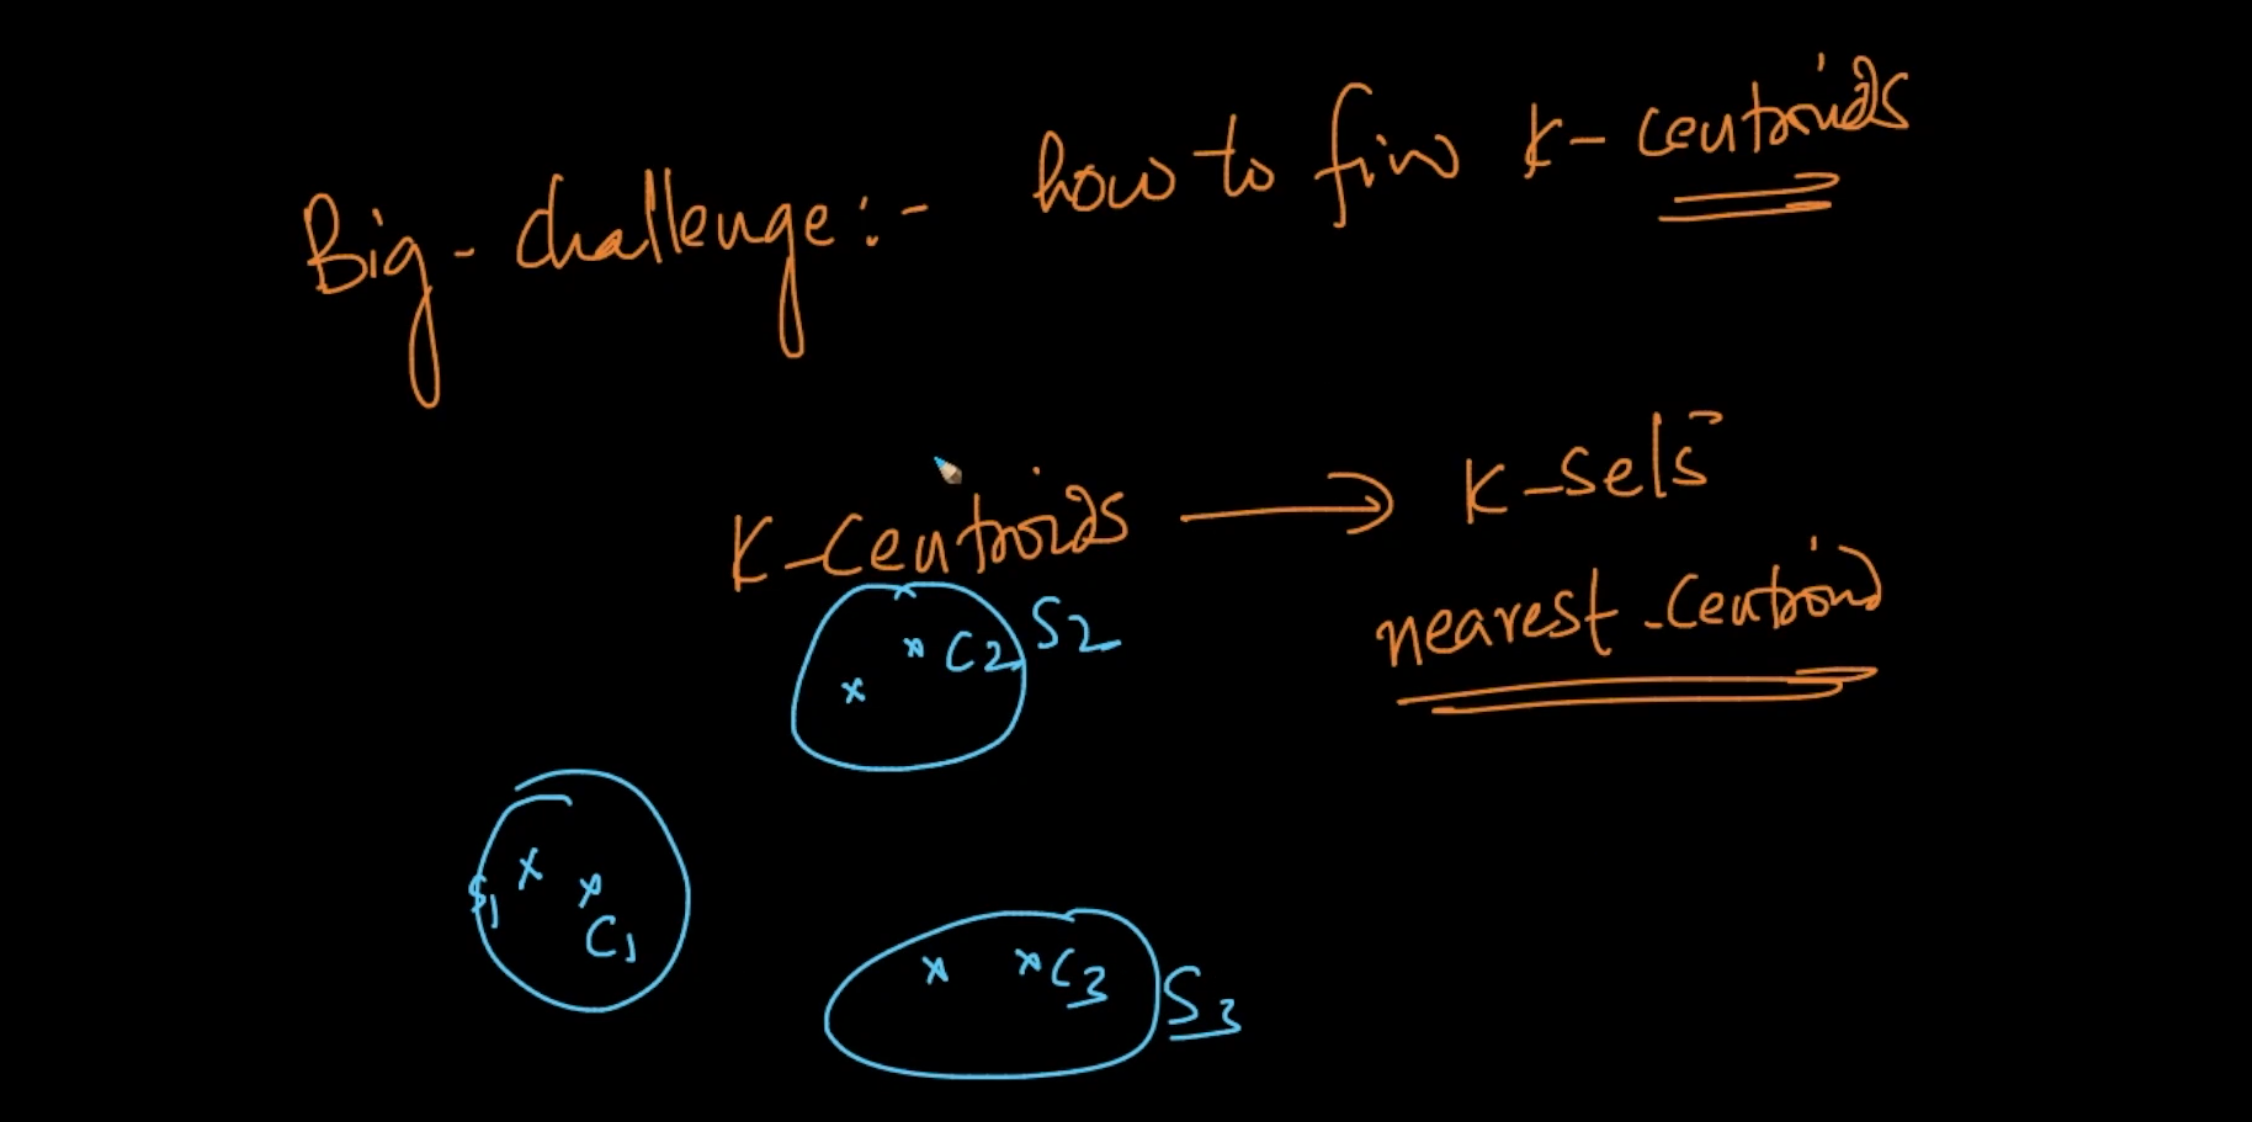 Big-challenge:- how to find K-centroids
K-Centroids → K-sets
nearest-Centroid
C2 S2
S1 C1
C3 S3